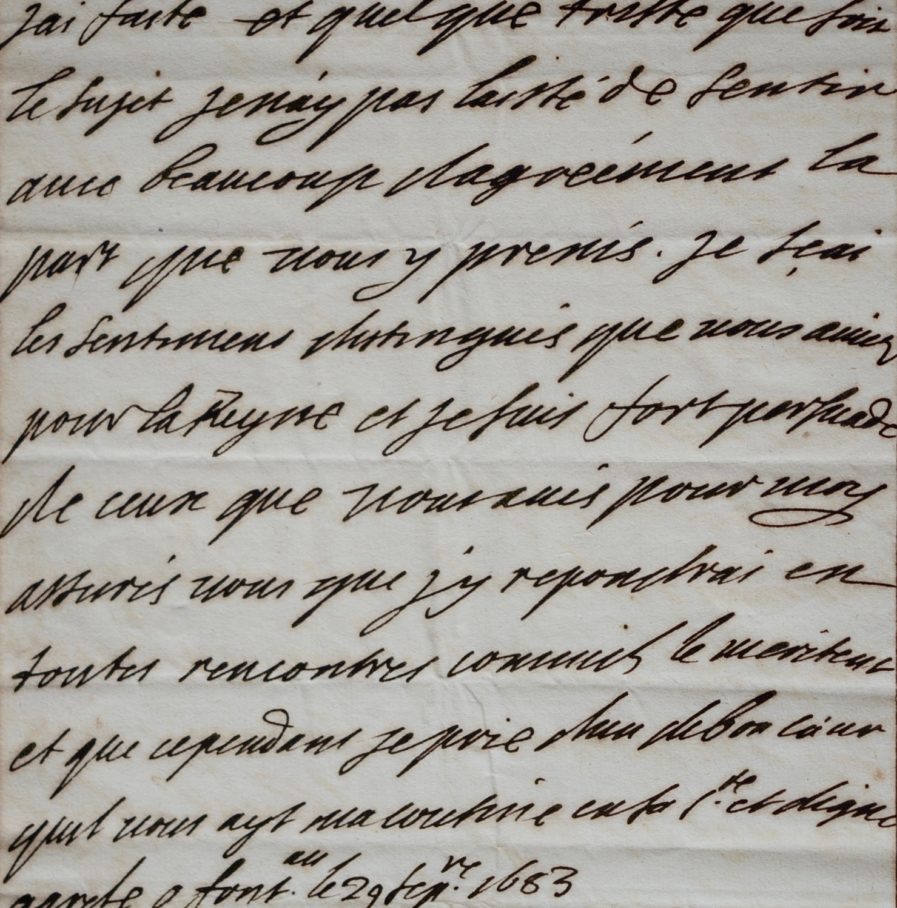 j'ai faite et quelque triste que soit
le sujet je n'ay pas laissé de sentir
avec beaucoup d'agreément la
part que vous y prenés. je sçai
les sentimens distingués que vous aviez
pour la Reyne et je suis fort persuadé
de ceux que vous avés pour moy
assurés vous que j'y repondrai en
toutes rencontres comme ils le meritent
et que cependant je prie dieu de bon cœur
qu'il vous ayt ma cousine en sa s.te et digne
garde a font.au le 29 sep.re 1683